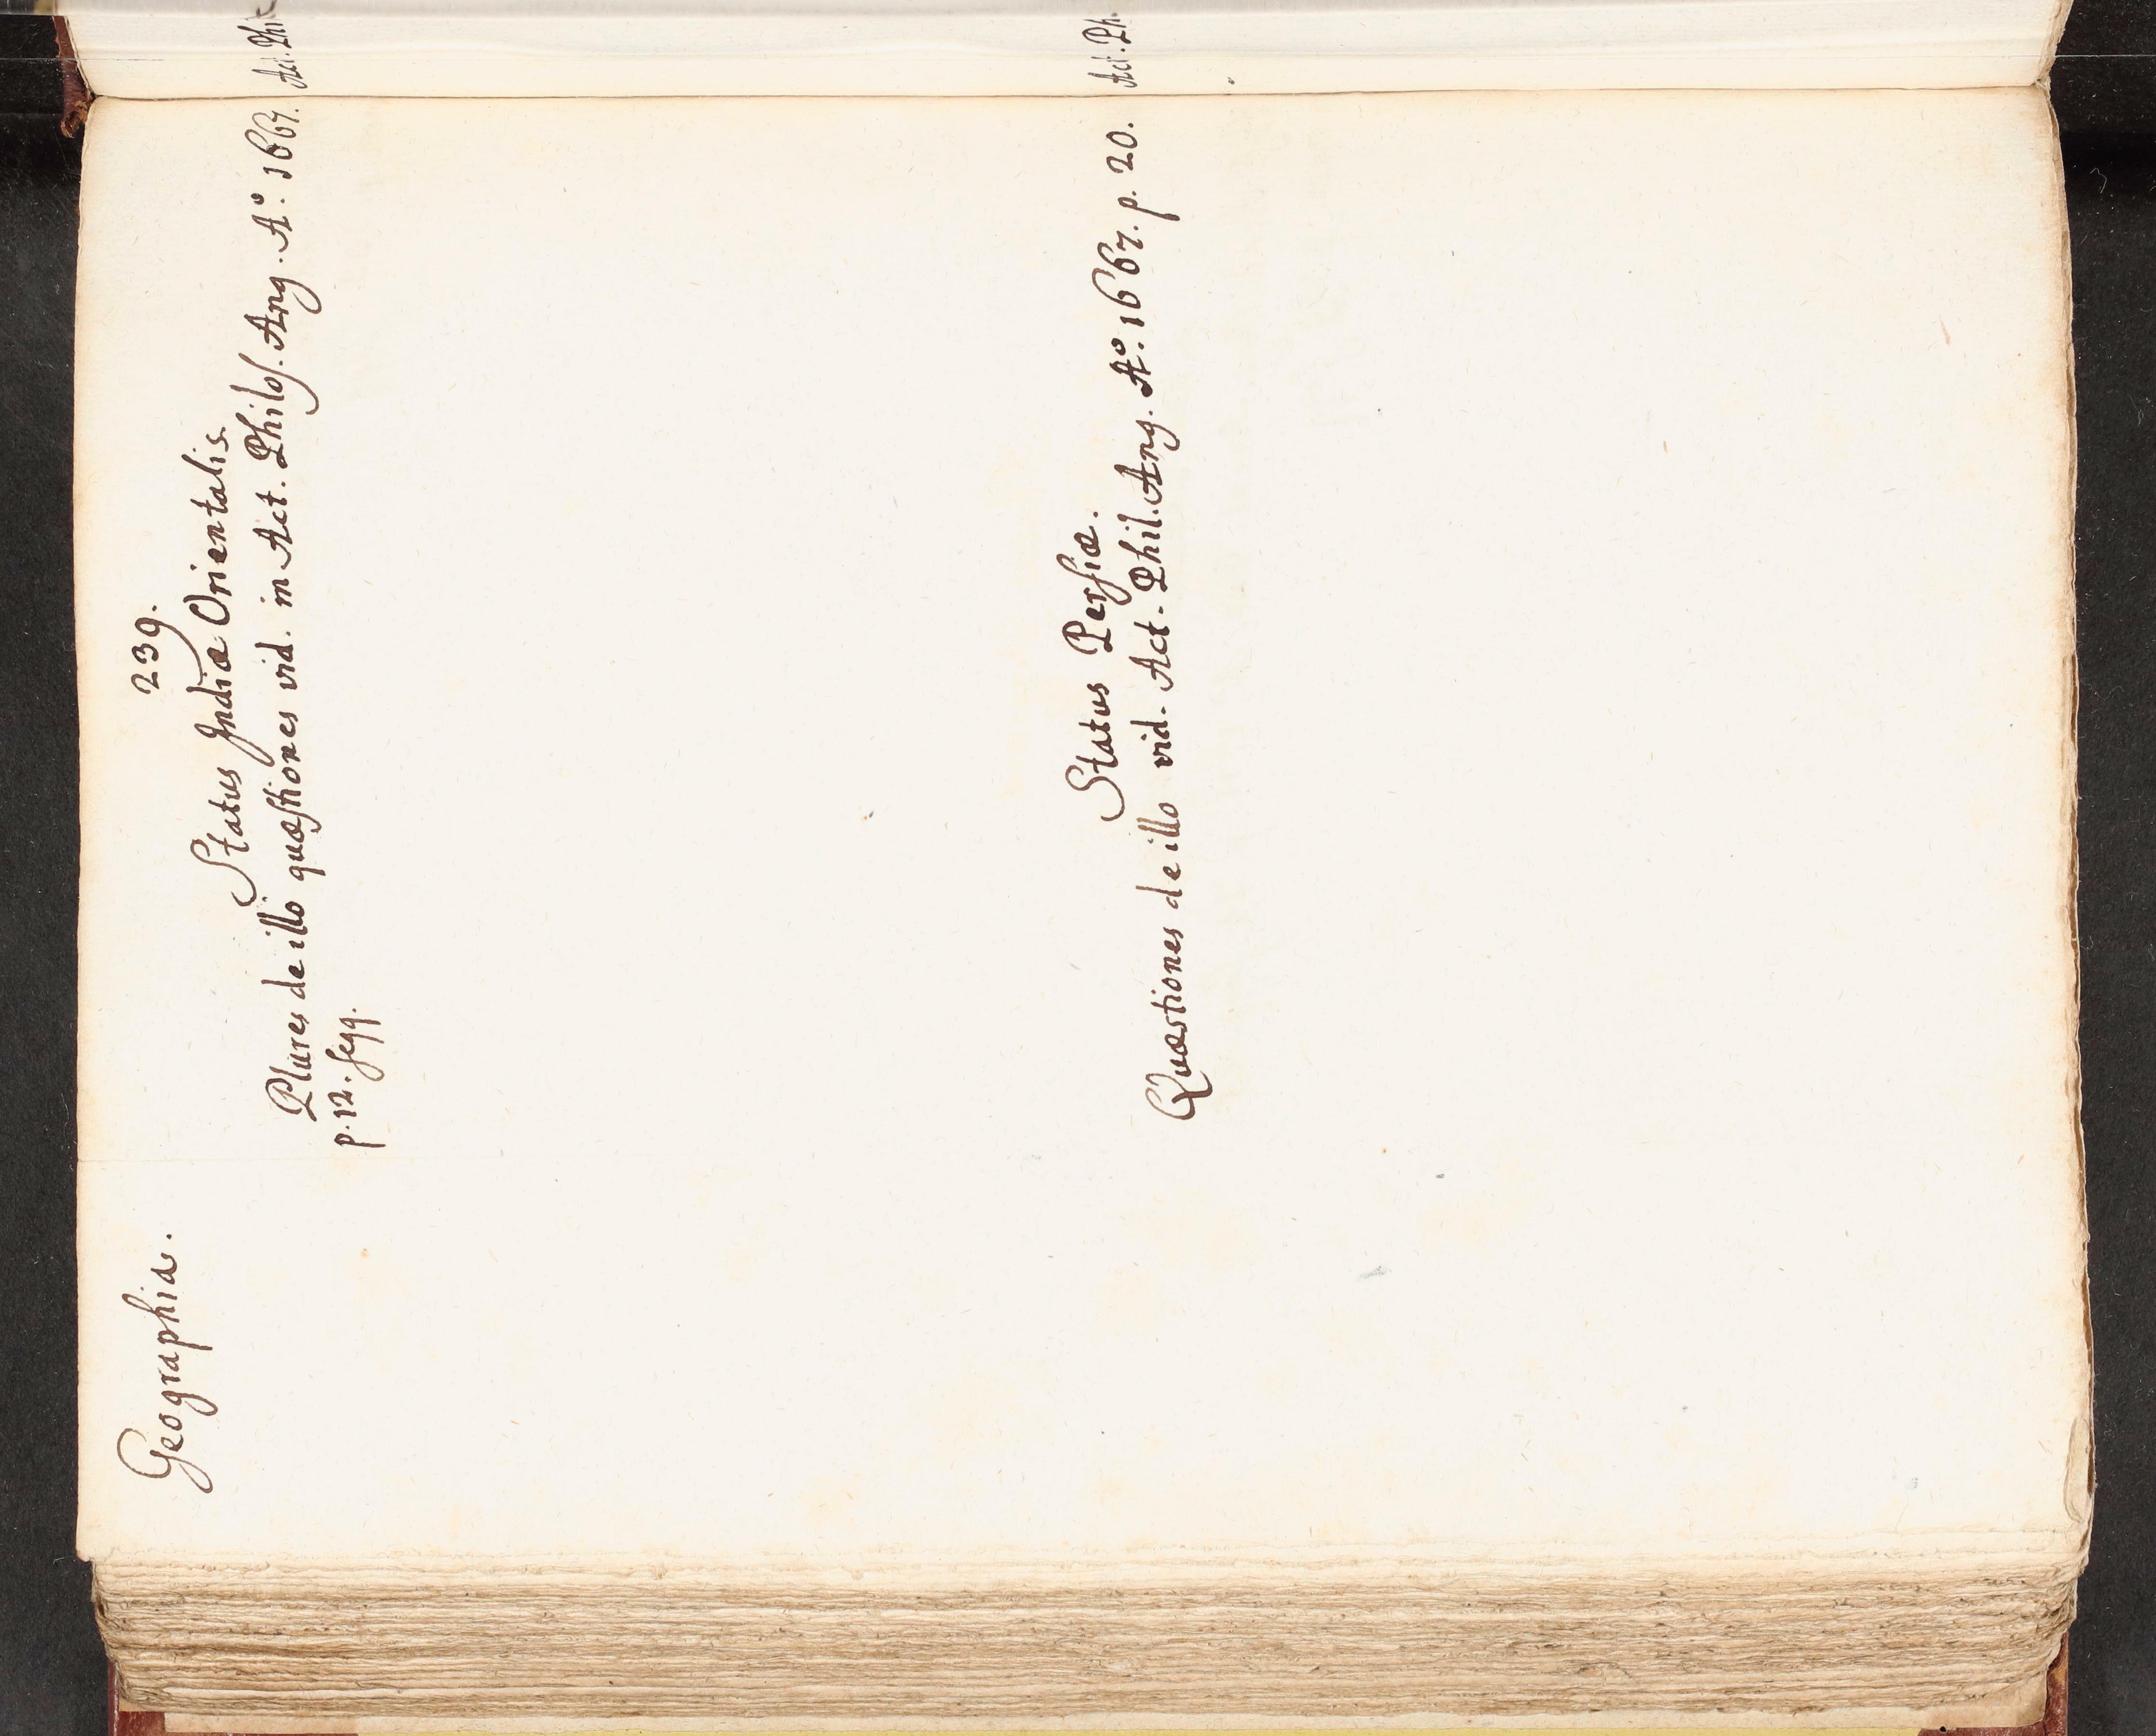 Geographia. 239.
Status Indiæ Orientalis.
Plures de illo quæstiones vid. in Act. Philos. Ang. A°. 1667.
p. 12. seqq.
Status Persiæ.
Quæstiones de illo vid. Act. Phil. Ang. A°. 1667. p. 20.
Act. Phi
Act. Ph.